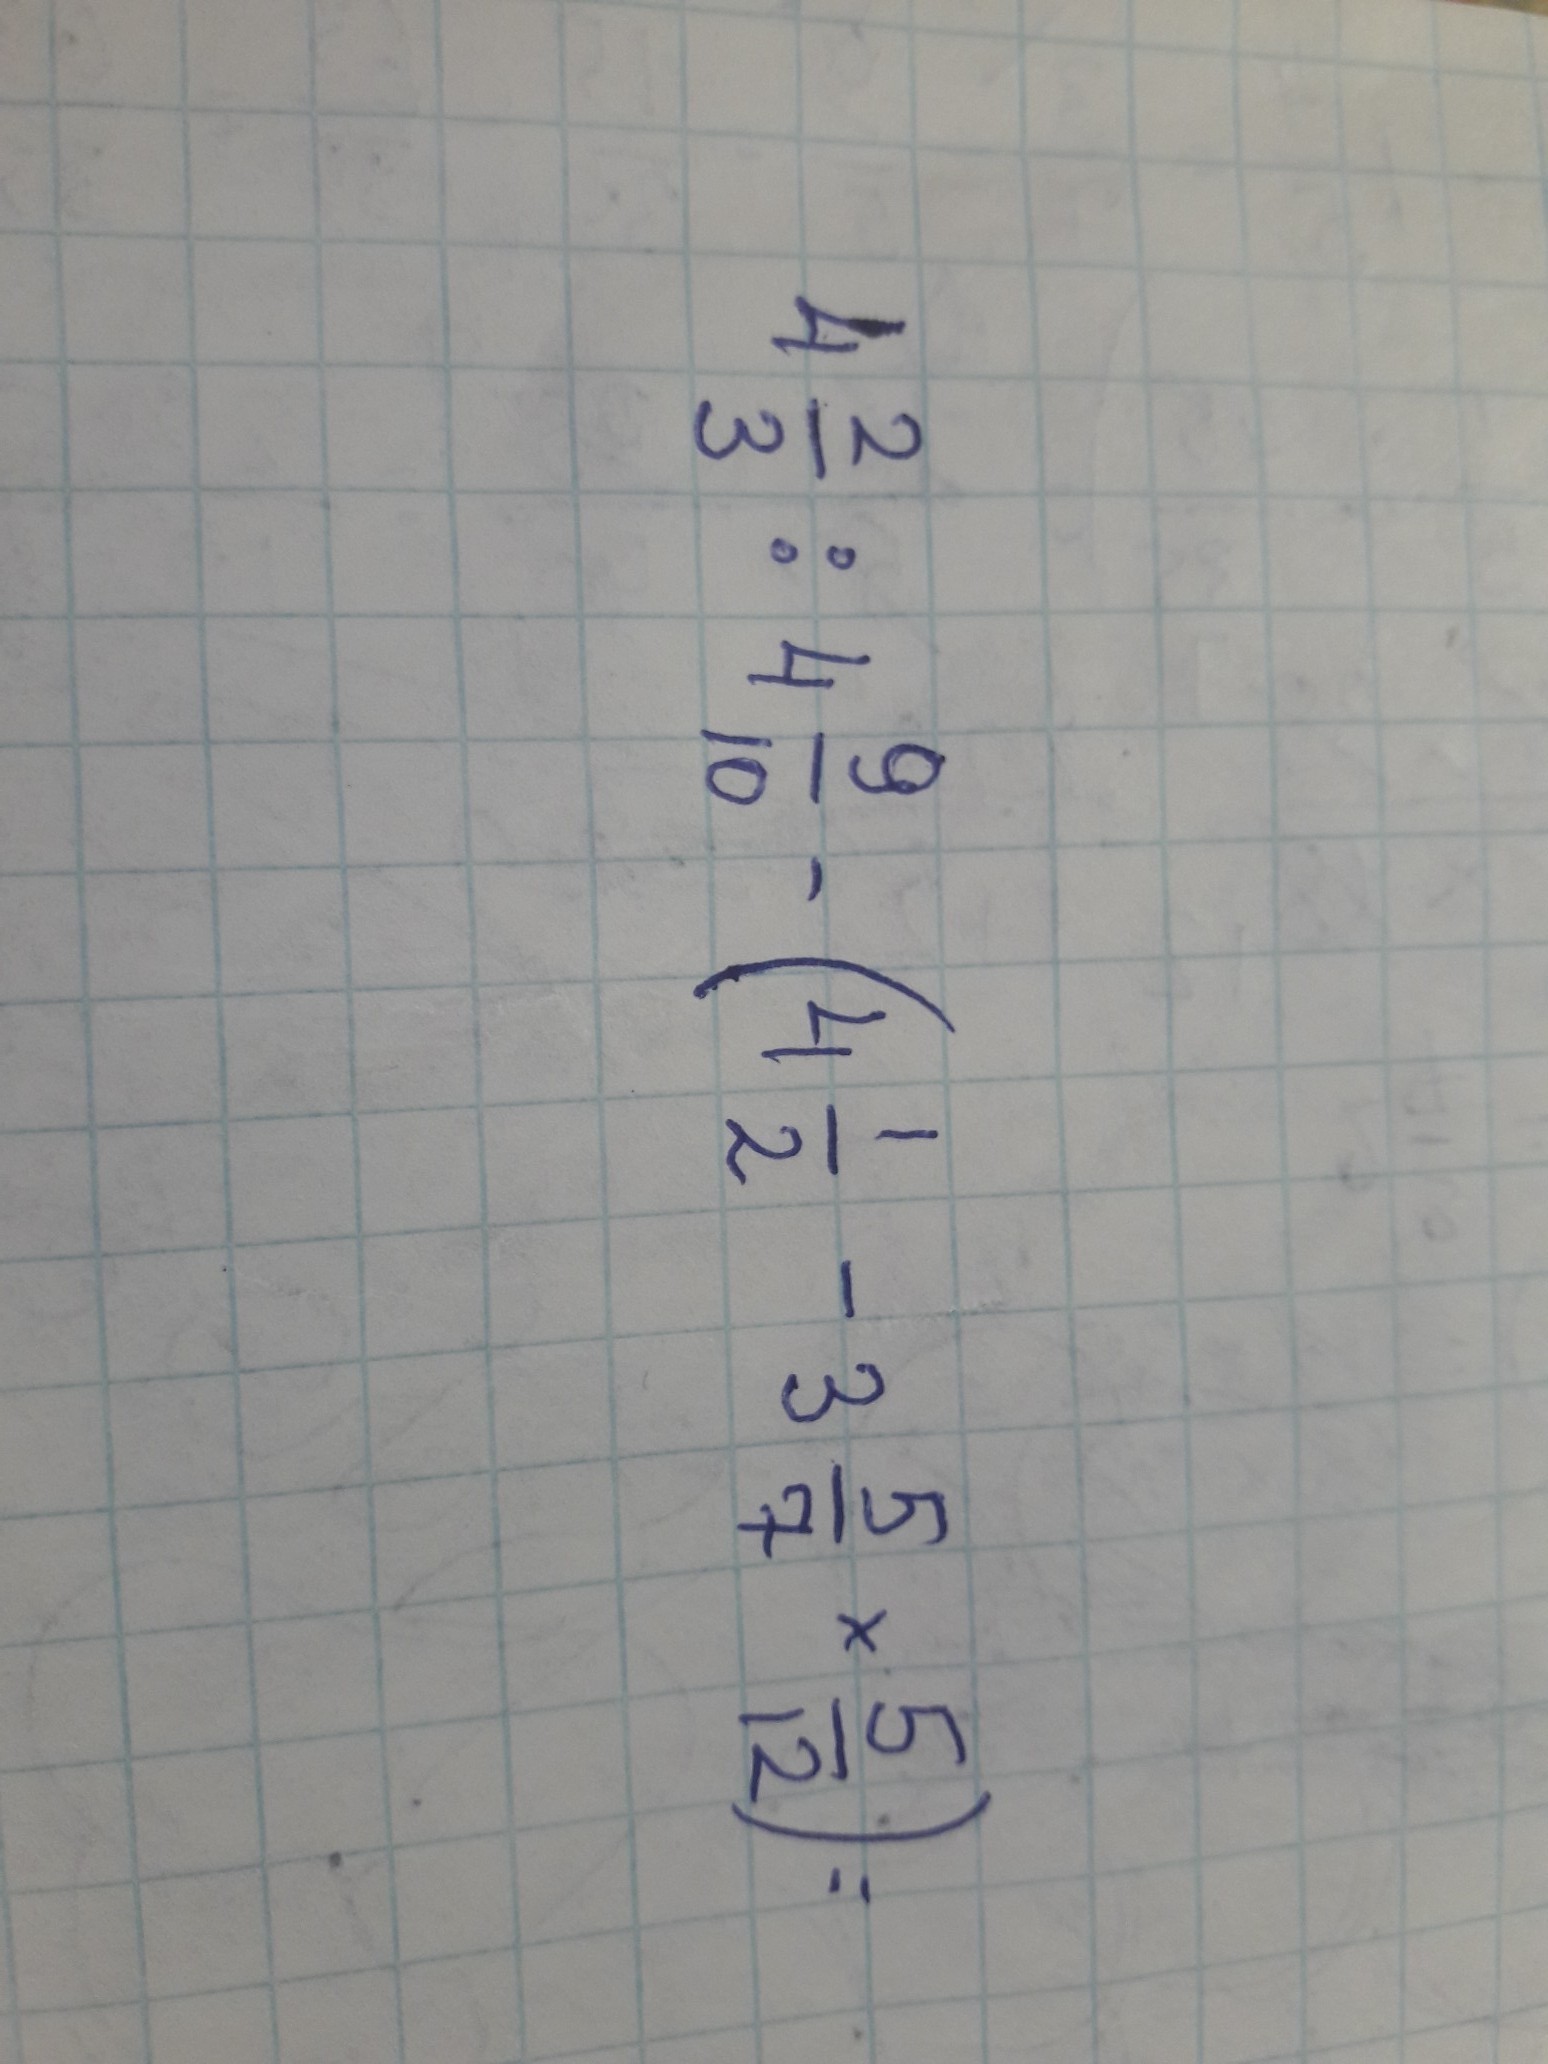 4 2/3 : 4 9/10 - (4 1/2 - 3 5/7 × 5/12) =